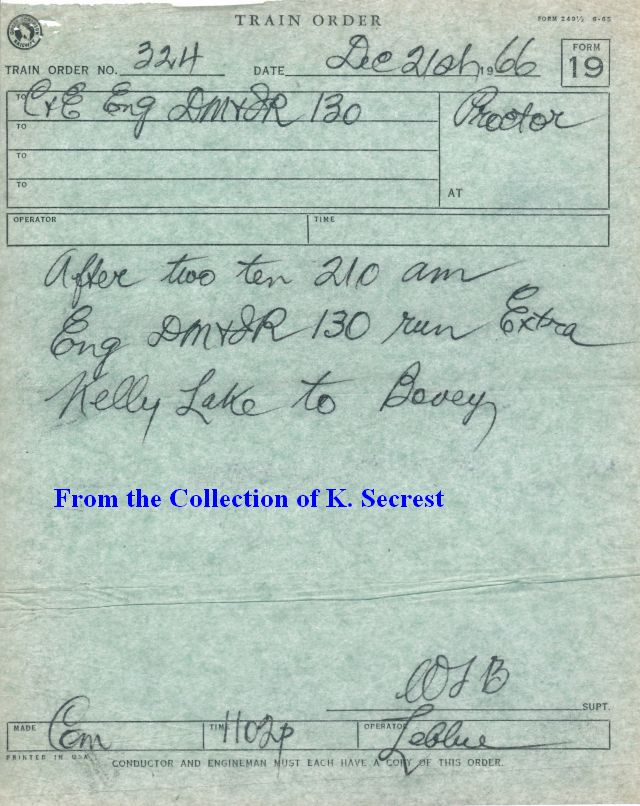 TRAIN ORDER
FORM 249½ 6-65
TRAIN ORDER NO. 324 DATE Dec 21st 1966 FORM 19
TO C&E Eng DM&IR 130 Proctor
TO
TO
TO
AT
OPERATOR TIME
After two ten 210 am
Eng DM&IR 130 run Extra
Kelly Lake to Bovey
From the Collection of K. Secrest
SUPT.
MADE Com TIME 1102p OPERATOR
PRINTED IN U.S.A.
CONDUCTOR AND ENGINEMAN MUST EACH HAVE A COPY OF THIS ORDER.